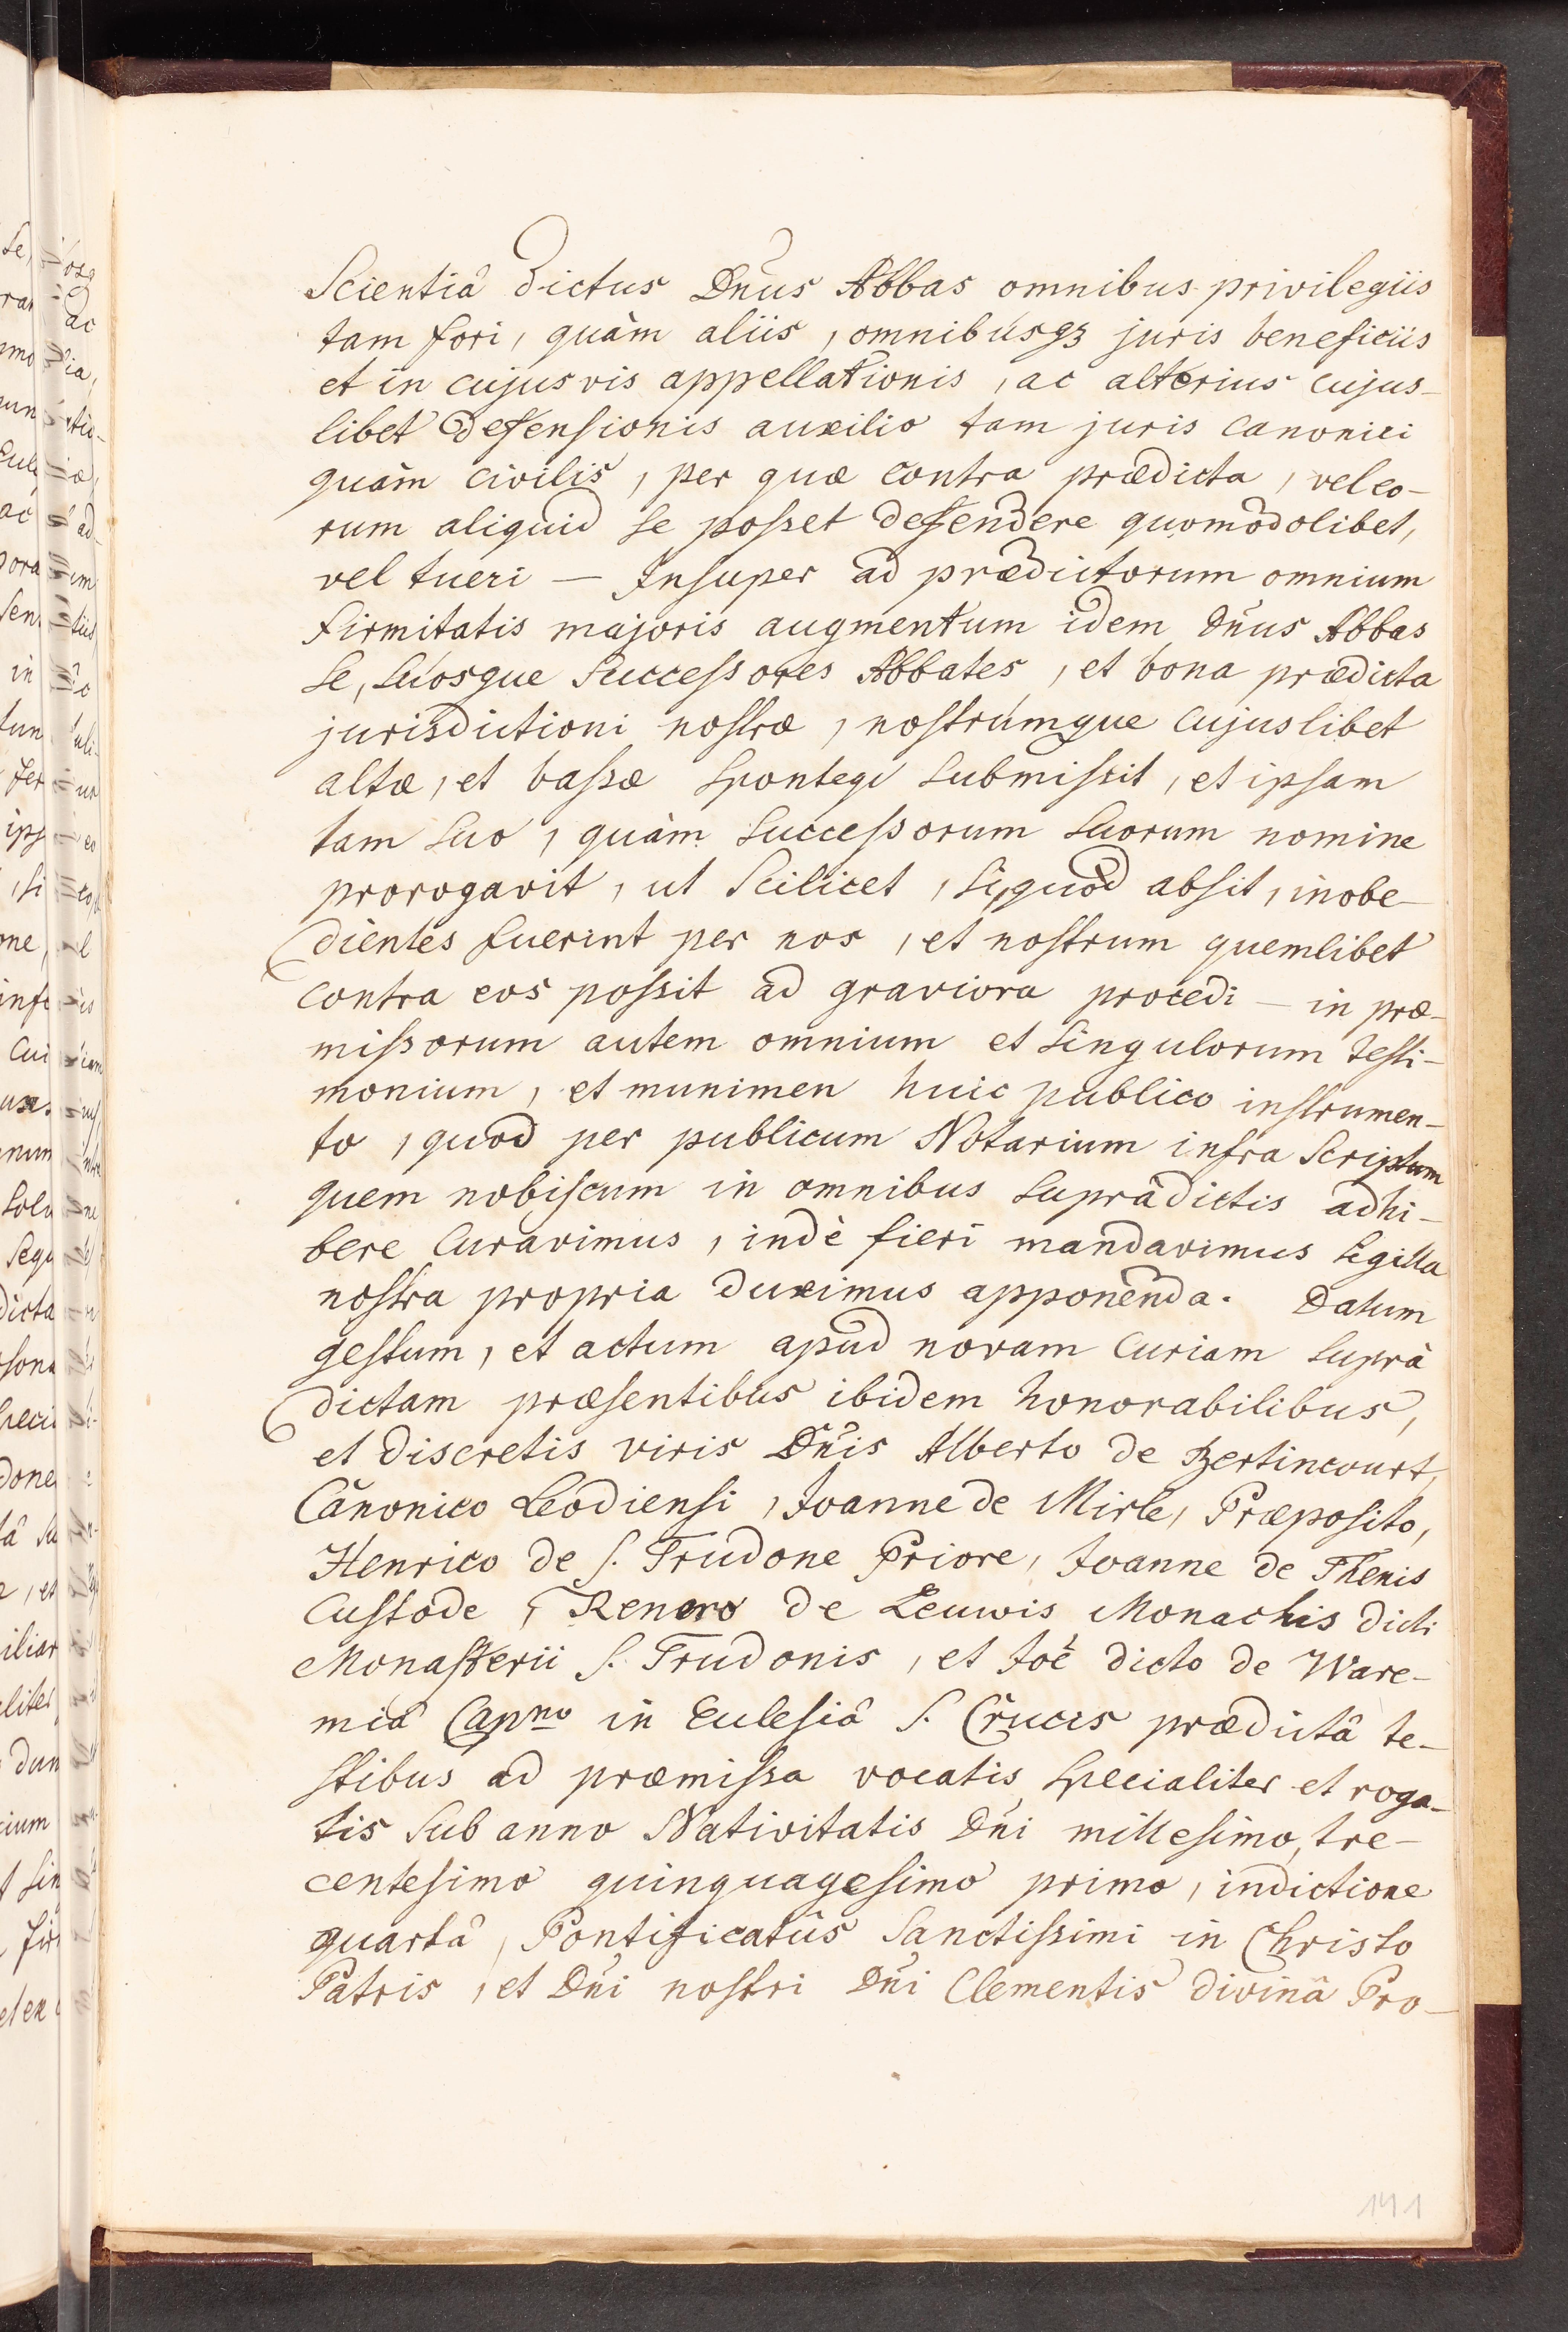 Scientiâ dictus Dñus Abbas omnibus privilegiis
tam fori, quàm aliis, omnibusqȝ juris beneficiis
et in cujusvis appellationis, ac alterius cujus-
libet defensionis auxilio tam juris Canonici
quàm civilis, per quæ contra prædicta, vel eo-
rum aliquid se posset defendere quomodolibet,
vel tueri — Insuper ad prædictorum omnium
firmitatis majoris augmentum idem Dñus Abbas
se, suosque successores Abbates, et bona prædicta
jurisdictioni nostræ, nostrumque cujuslibet
altæ, et bassæ submissit, et ipsam
tam suo, quàm successorum suorum nomine
prorogavit, ut scilicet, si, quod absit, inobe-
dientes fuerint per nos, et nostrum quemlibet
contra eos possit ad graviora procedi — in præ-
missorum autem omnium et singulorum testi-
monium, et munimen huic publico instrumen-
to, quod per publicum Notarium infra scriptum
quem nobiscum in omnibus supràdictis adhi-
bere curavimus, indè fieri mandavimus sigilla
nostra propria duximus apponenda. Datum
gestum, et actum apud novam Curiam suprà
dictam præsentibus ibidem honorabilibus,
et discretis viris Dñis Alberto de Bertincourt,
Canonico Leodiensi, Joanne de Mirle, Præposito,
Henrico de S. Trudone Priore, Joanne de Thenis
Custode, Renero de Leuwis Monachis dicti
Monasterii S. Trudonis, et Joẽ dicto de Ware-
miâ Capno in Eulesiâ S. Crucis prædictâ te-
stibus ad præmissa vocatis specialiter et roga-
tis sub anno Nativitatis Dñi millesimo, tre-
centesimo quinquagesimo primo, indictione
quartâ, Pontificatûs Sanctissimi in Christo
Patris, et Dñi nostri Dñi Clementis divinâ Pro-
141